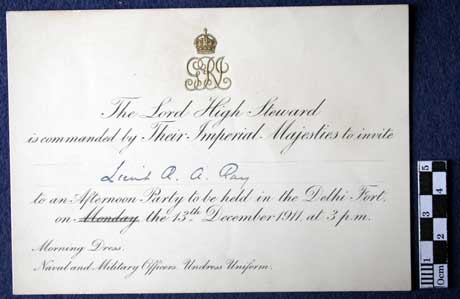 GRI
The Lord High Steward
is commanded by Their Imperial Majesties to invite
Lieut R. A. Ray
to an Afternoon Party to be held in the Delhi Fort,
on Monday the 13th December 1911, at 3 p.m.
Morning Dress.
Naval and Military Officers Undress Uniform.
5
4
3
2
1
0cm